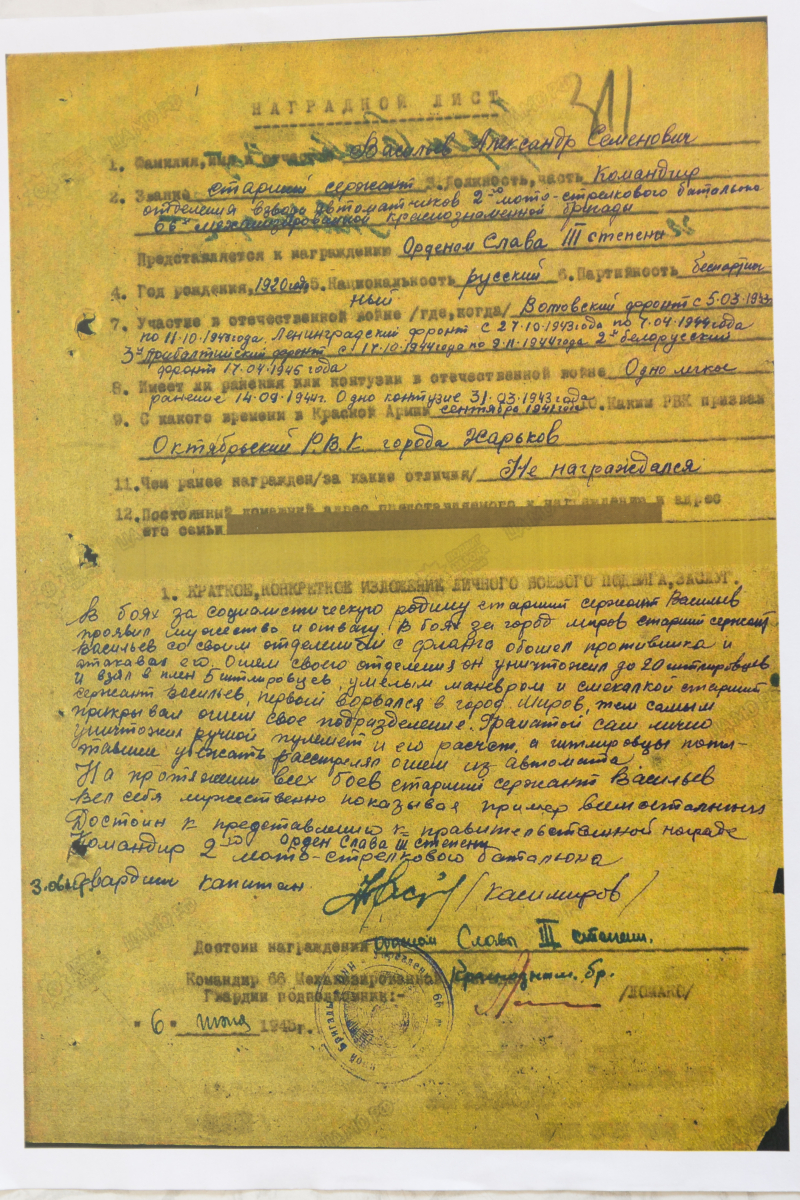 311
НАГРАДНОЙ ЛИСТ
1. Фамилия, Имя и отчество Васильев Александр Семенович
2. Звание старший сержант 3. Должность, часть Командир
отделения взвода автоматчиков 2го мото-стрелкового батальона
66й механизированной краснознаменной бригады
Представляется к награждению Орденом Слава III степени
4. Год рождения, 1920 год 5. Национальность русский 6. Партийность беспартий
ный
7. Участие в отечественной войне /где, когда/ Волховский фронт с 5.03.1943
по 11.10.1943 года, Ленинградский фронт с 27.10.1943 года по 7.04.1944 года
3й прибалтийский фронт с 17.10.1944 года по 9.11.1944 года 2й белорусский
фронт 17.04.1945 года
8. Имеет ли ранения или контузии в отечественной войне Одно легкое
ранение 14.09.1944г. Одно контузие 31.03.1943 года
9. С какого времени в Красной Армии сентября 1941 года 10. Каким РВК призван
Октябрьский Р.В.К города Харьков
11. Чем ранее награжден /за какие отличия/ Не награждался
12. Постоянный домашний адрес представляемого к награждению и адрес
его семьи
1. КРАТКОЕ, КОНКРЕТНОЕ ИЗЛОЖЕНИЕ ЛИЧНОГО БОЕВОГО ПОДВИГА, ЗАСЛУГ.
В боях за социалистическую родину старший сержант Васильев
проявил мужество и отвагу. В боях за город миров старший сержант
Васильев со своим отделением с фланга обошел противника и
атаковал его. Огнем своего отделения он уничтожил до 20 гитлеровцев
и взял в плен 5 гитлеровцев, умелым маневром и смекалкой старший
сержант Васильев, первым ворвался в город Миров, тем самым
прикрывал огнем свое подразделение. Гранатой сам лично
уничтожил ручной пулемет и его расчет, а гитлеровцы попы-
тавшие убежать расстрелял огнем из автомата.
На протяжении всех боев старший сержант Васильев
вел себя мужественно показывая пример всем остальным
Достоин к представлению к правительственной награде
орден Слава III степени
Командир 2го мото-стрелкового батальона
гвардии капитан /Касимиров/
Достоин награждения орденом Славы III степени.
Командир 66 Механизированной Краснознам. бр.
Гвардии подполковник:- /ДОМАКС/
"6" июня 1945г.